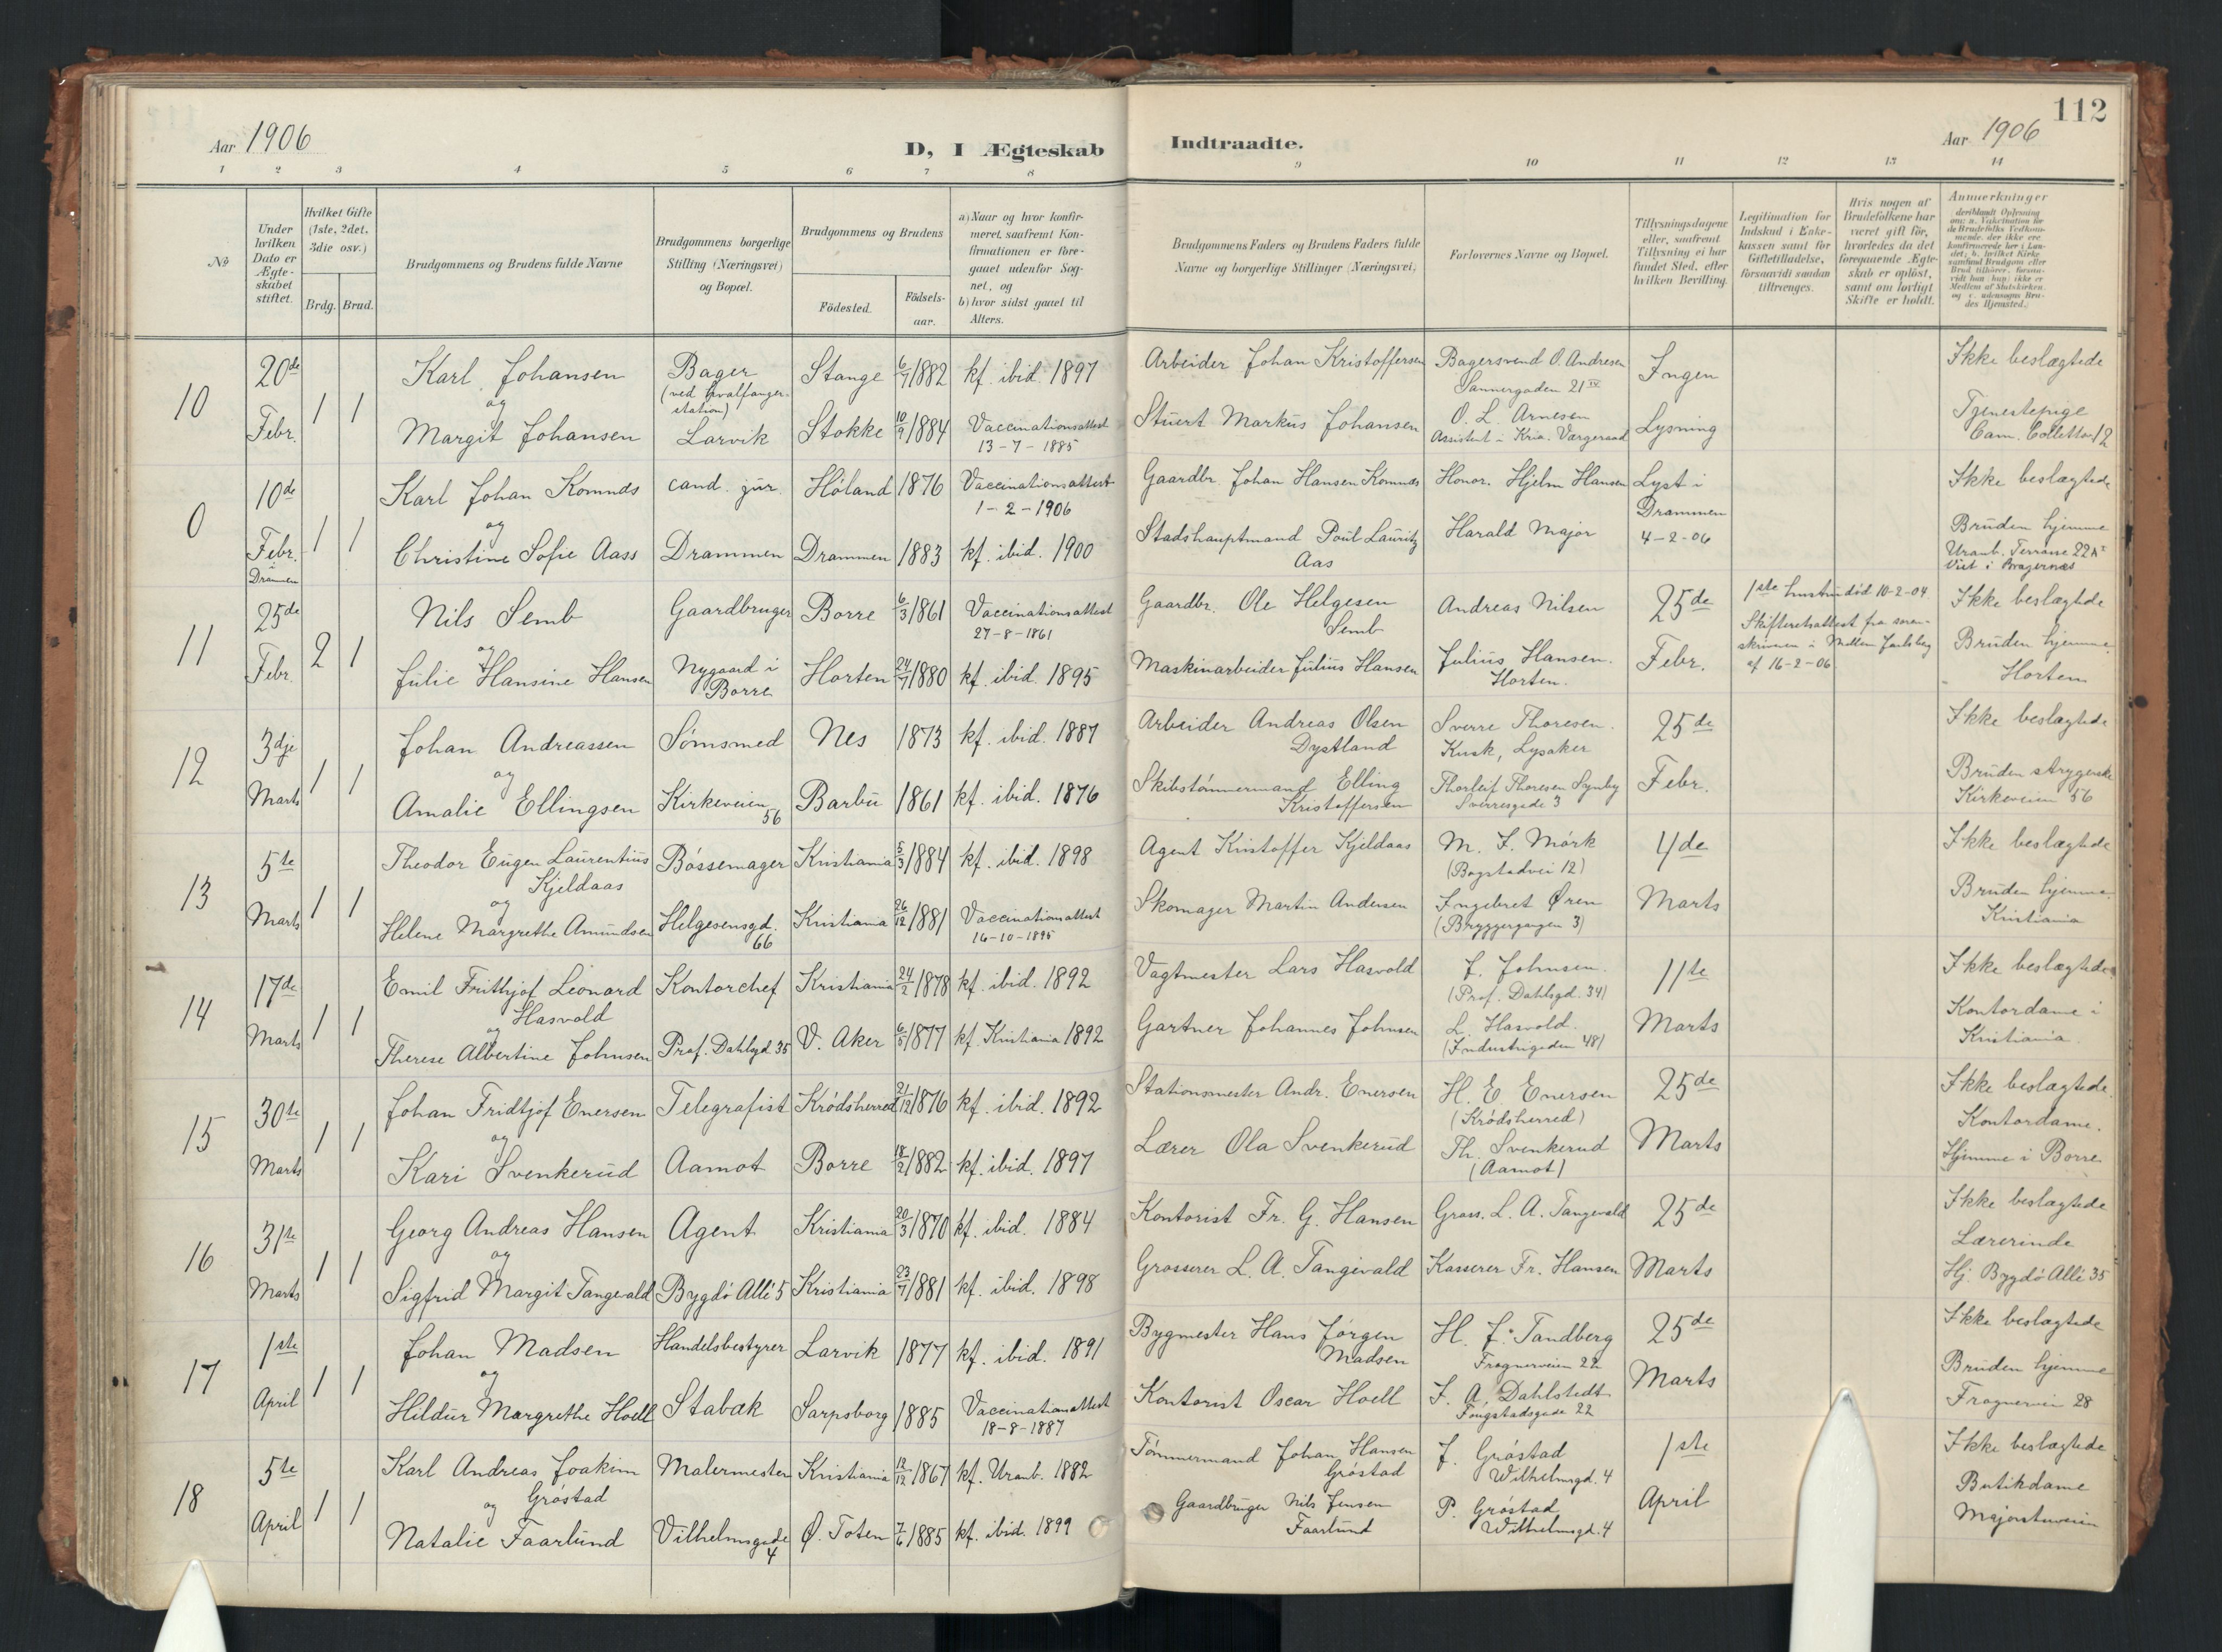 112
Aar 1906
D, I Ægteskab Indtraadte.
Aar 1906
1 2 3 4 5 6 7 8 9 10 11 12 13 14
No
Under hvilken Dato er Ægteskabet stiftet.
Hvilket Gifte (1ste, 2det, 3die osv.)
Brdg. Brud.
Brudgommens og Brudens fulde Navne
Brudgommens borgerlige Stilling (Næringsvei) og Bopæl.
Brudgommens og Brudens
Födested.
Födsels-aar.
a) Naar og hvor konfirmeret, saafremt Konfirmationen er foregaaet udenfor Sognet, og
b) hvor sidst gaaet til Alters.
Brudgommens Faders og Brudens Faders fulde Navne og borgerlige Stillinger (Næringsvei)
Forlovernes Navne og Bopæl.
Tillysningsdagene eller, saafremt Tillysning ei har fundet Sted, efter hvilken Bevilling.
Legitimation for Indskud i Enkekassen samt for Giftetilladelse, forsaavidt saadan tiltrænges.
Hvis nogen af Brudefolkene har været gift för, hvorledes da det foregaaende Ægteskab er oplöst, samt om lovligt Skifte er holdt.
Anmerkninger
10
20de Febr.
1 1
Karl Johansen
og
Margit Johansen
Bager
(ved hvalfanger-
station)
Larvik
Stange 6/7 1882 kf. ibid. 1897
Stokke 10/9 1884 Vaccinationsattest
13-7-1885
Arbeider Johan Kristoffersen
Stuert Markus Johansen
Bagersvend O. Andresen
Sannergaden 21 IV
O. L. Arnesen
Assistent i Kria. Værgeraad
Ingen
Lysning
Ikke beslægtede
Tjenestepige
Cam. Collettsv. 12
0
10de Febr.
Drammen
1 1
Karl Johan Komnæs
og
Christine Sofie Aass
cand. jur.
Drammen
Høland 1876 Vaccinationsattest
1-2-1906
Drammen 1883 kf. ibid. 1900
Gaardbr. Johan Hansen Komnæs
Stadshauptmand Poul Lauritz
Aas
Honor. Hjelm Hansen
Harald Major
Lyst i
Drammen
4-2-06
Ikke beslægtede
Bruden hjemme
Uranb. Terrasse 22A I
Viet i Bragernæs
11
25de Febr.
2 1
Nils Semb
og
Julie Hansine Hansen
Gaardbruger
Nygaard i
Borre
Borre 6/3 1861 Vaccinationsattest
27-8-1861
Horten 24/7 1880 kf. ibid. 1895
Gaardbr. Ole Helgesen
Semb
Maskinarbeider Julius Hansen
Andreas Nilsen
Julius Hansen.
Horten.
25de
Febr.
1ste hustru død 10-2-04.
Skifteretsattest fra soren-
skriveren i Mellem Jarlsberg
af 16-2-06
Ikke beslægtede
Bruden hjemme
Horten
12
3dje Marts
1 1
Johan Andreassen
og
Amalie Ellingsen
Sömsmed
Kirkeveien
56
Nes 1873 kf. ibid. 1887
Barbu 1861 kf. ibid. 1876
Arbeider Andreas Olsen
Dystland
Skibstømmermand Elling
Kristoffersen
Sverre Thoresen.
Kusk, Lysaker
Thorleif Thoresen
Sverresgade 3
25de
Febr.
Ikke beslægtede
Bruden strygerske
Kirkeveien 56
13
5te Marts
1 1
Theodor Eugen Laurentius
Kjeldaas
og
Helene Margrethe Amundsen
Bössemager
Helgesensgd.
66
Kristiania 5/3 1884 kf. ibid. 1898
Kristiania 26/12 1881 Vaccinationsattest
16-10-1895
Agent Kristoffer Kjeldaas
Skomager Martin Andersen
M. F. Mörk
(Bogstadvei 12)
Ingebret Øren
(Bryggergangen 3)
4de
Marts
Ikke beslægtede
Bruden hjemme.
Kristiania
14
17de Marts
1 1
Emil Frithjof Leonard
Hasvold
og
Therese Albertine Johnsen
Kontorchef
Prof. Dahlsgd. 35
Kristiania 24/2 1878 kf. ibid. 1892
V. Aker 6/5 1877 kf. Kristiania 1892
Vagtmester Lars Hasvold
Gartner Johannes Johnsen
J. Johnsen.
(Prof. Dahlsgd. 34)
L. Hasvold.
(Industrigaden 48)
11te
Marts
Ikke beslægtede
Kontordame i
Kristiania.
15
30te Marts
1 1
Johan Fridtjof Enersen
og
Kari Svenkerud
Telegrafist
Aamot
Krödsherred 21/12 1876 kf. ibid. 1892
Borre 18/2 1882 kf. ibid. 1897
Stationsmester Andr. Enersen
Lærer Ola Svenkerud
H. E. Enersen
(Krödsherred)
Th. Svenkerud
(Aamot)
25de
Marts
Ikke beslægtede.
Kontordame.
Hjemme i Borre
16
31te Marts
1 1
Georg Andreas Hansen
og
Sigfrid Margit Tangevald
Agent
Bygdö Allé 5
Kristiania 20/3 1870 kf. ibid. 1884
Kristiania 23/7 1881 kf. ibid. 1898
Kontorist Fr. G. Hansen
Grosserer L. A. Tangevald
Gross. L. A. Tangevald
Kasserer Fr. Hansen
25de
Marts
Ikke beslægtede
Lærerinde
Hj. Bygdö Allé 35
17
1ste April
1 1
Johan Madsen
og
Hildur Margrethe Hoell
Handelsbestyrer
Stabæk
Larvik 1877 kf. ibid. 1891
Sarpsborg 1885 Vaccinationsattest
18-8-1887
Bygmester Hans Jørgen
Madsen
Kontorist Oscar Hoell
H. J. Tandberg
Frognerveien 22
J. A. Dahlstedt
Fougstadsgade 22
25de
Marts
Ikke beslægtede
Bruden hjemme
Frognervei 28
18
5te April
1 1
Karl Andreas Joakim
Gröstad
og
Natalie Faarlund
Malermester
Vilhelmsgade
4
Kristiania 12/12 1867 kf. Uranb. 1882
Ø. Toten 7/6 1885 kf. ibid. 1899
Tömmermand Johan Hansen
Gröstad
Gaardbruger Nils Jensen
Faarlund
J. Gröstad
Wilhelmsgd. 4
P. Gröstad
Wilhelmsgd. 4
1ste
April
Ikke beslægtede
Butikdame
Majorstuveien